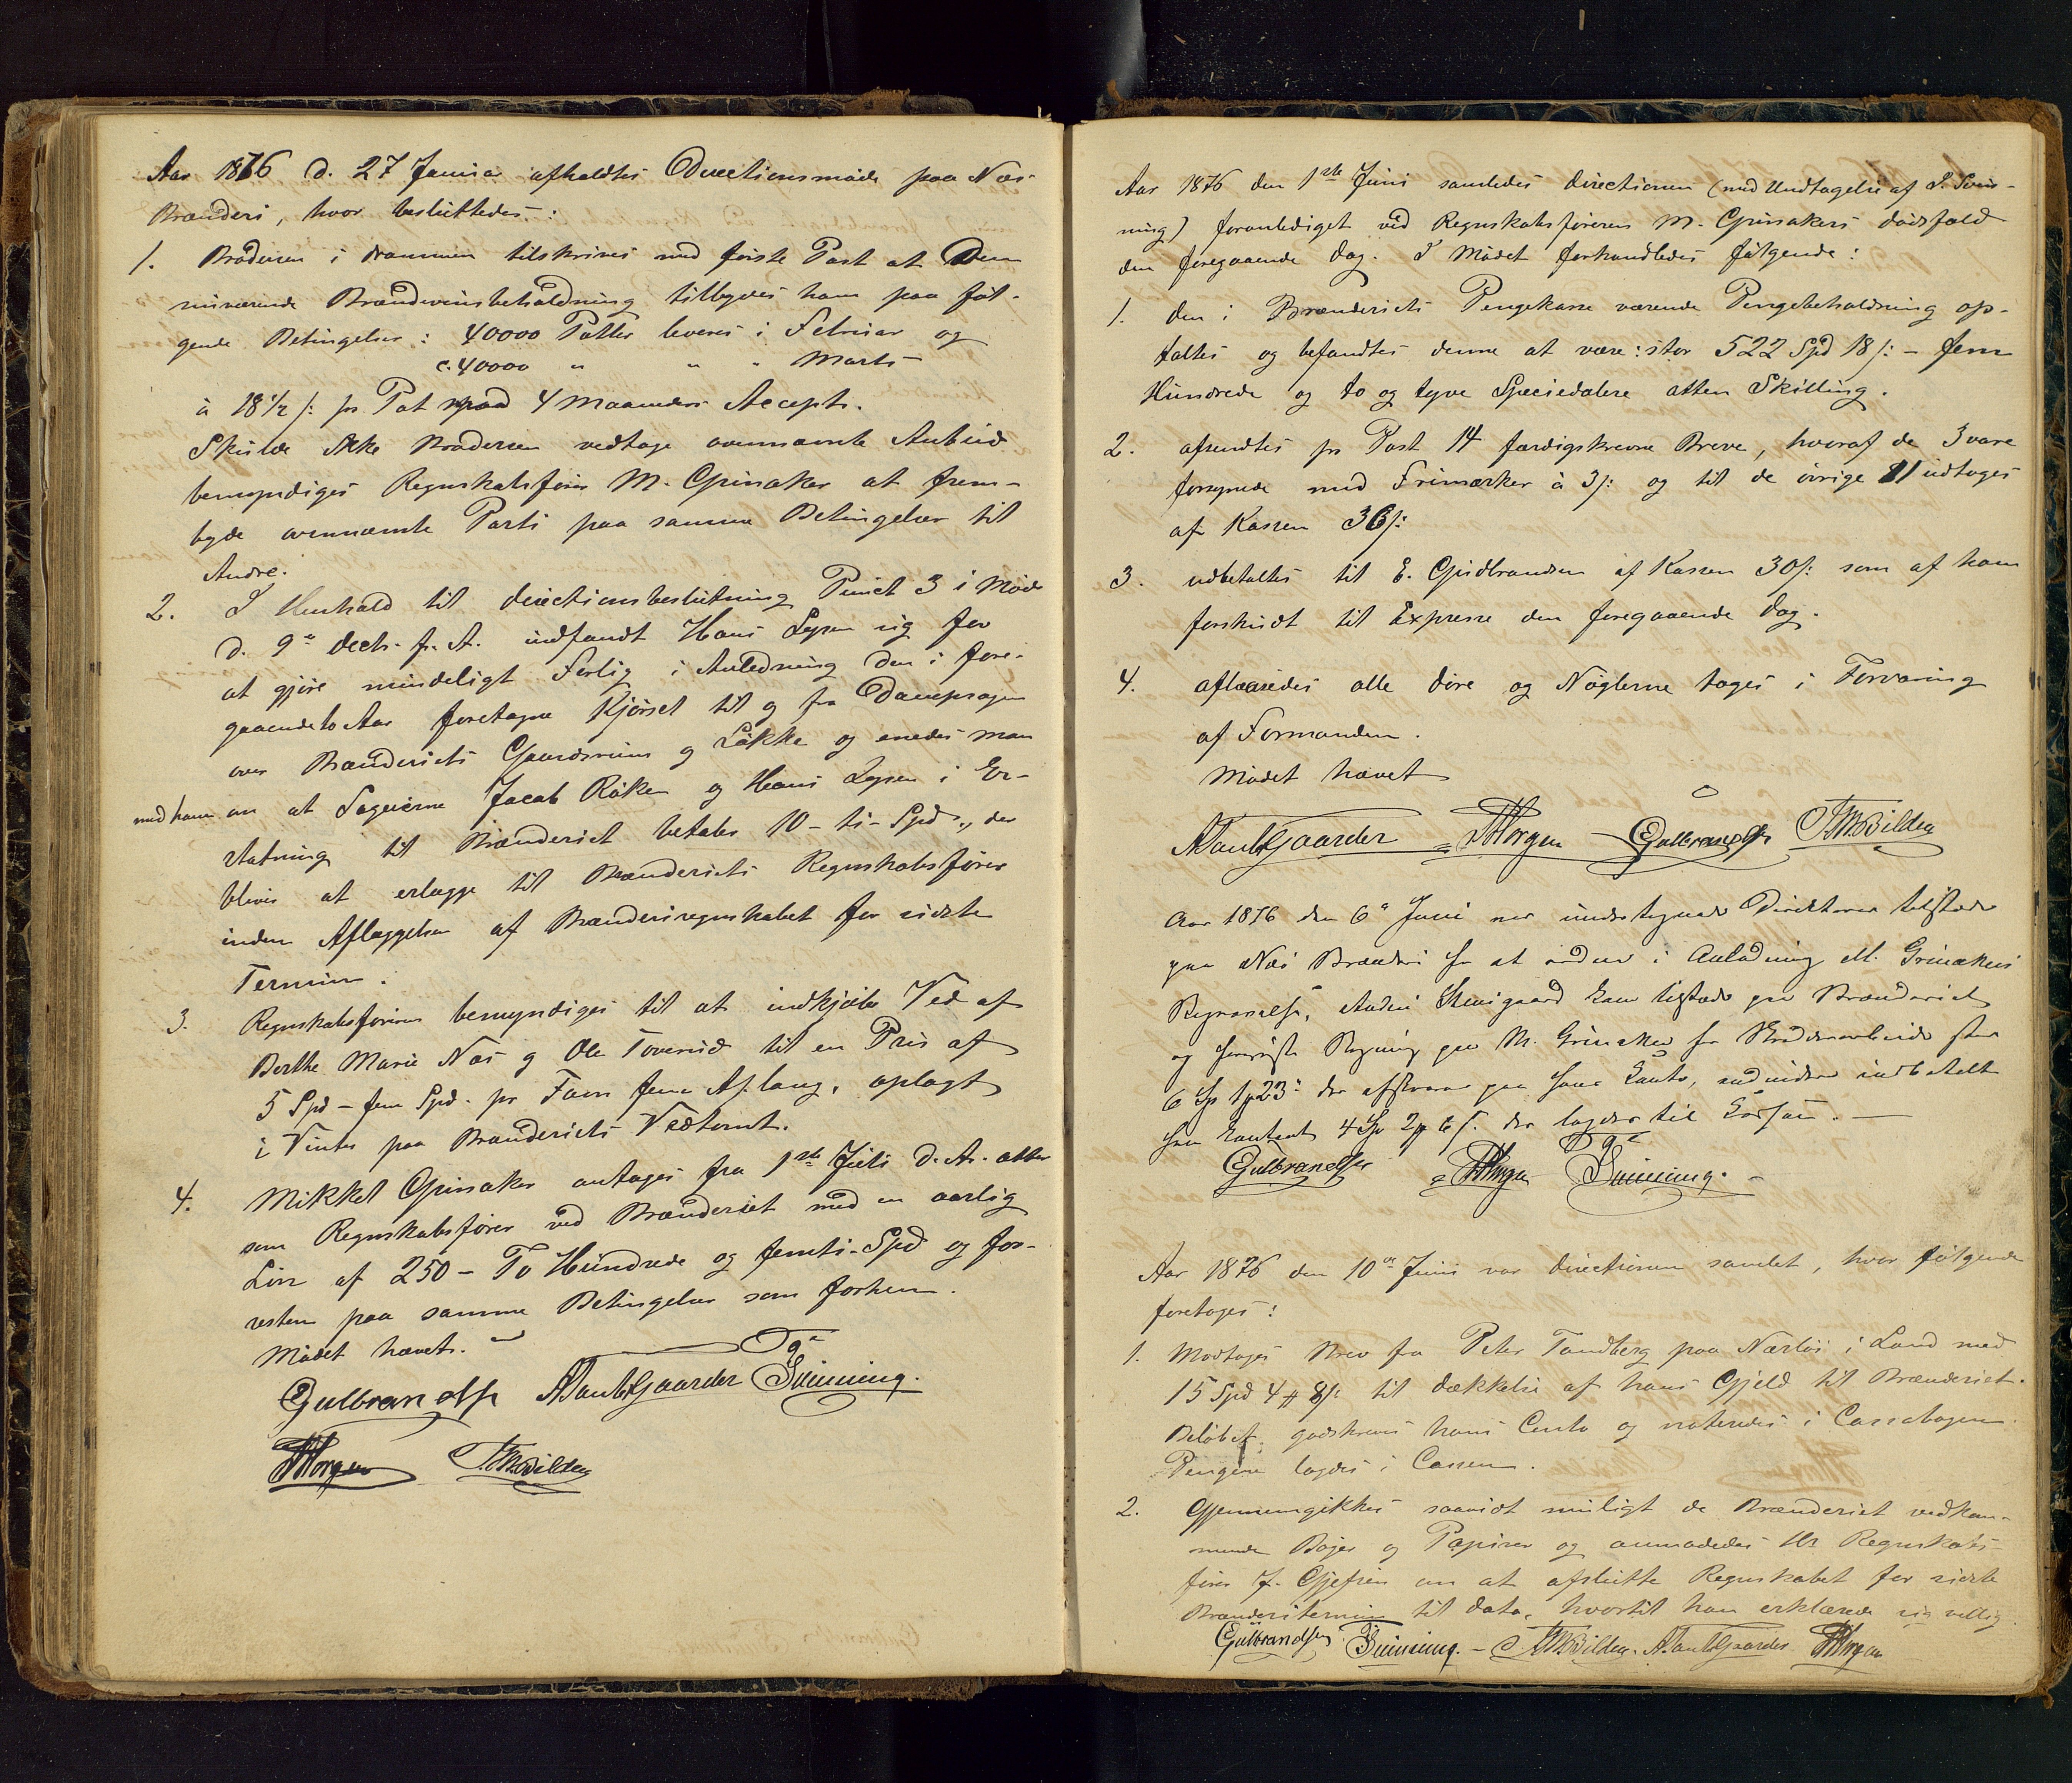 Aar 1876 d. 27 Januar afholdtes Directionsmøde paa Næs
Brænderi, hvor besluttedes:
1. Brodersen i Drammen tilskrives med første Post at den
nuværende Brændevinsbeholdning tilbydes ham paa føl-
gende Betingelser: 40000 Potter leveres i Februar og
c. 40000 " " " Marts
à 18 1/2 s: pr. Pot paa 4 Maaneders Accept.
Skulde ikke Brodersen vedtage ovennævnte Anbud
bemyndiges Regnskabsfører M. Grinaker at frem-
byde ovennævnte Parti paa samme Betingelser til
Andre.
2. I Henhold til Directionsbeslutning Punct 3 i Møde
d. 9de Decb. f. A. indfandt Hans Lysen sig for
at gjøre mindeligt Forlig i Anledning den i fore-
gaaende to Aar foretagne Kjørsel til og fra Dampsagen
over Brænderiets Gaardsrum og Løkke og enedes man
med ham om at Sageierne Jacob Røken og Hans Lysen i Er-
statning til Brænderiet betaler 10 - ti - Spd., der
bliver at erlægge til Brænderiets Regnskabsfører
inden Aflæggelsen af Brænderiregnskabet for sidste
Termin.
3. Regnskabsføreren bemyndiges til at indkjøbe Ved af
Berthe Marie Næs og Ole Toverud til en Pris af
5 Spd - fem Spd. pr Favn fem Af. lang, oplagt
i Vinter paa Brænderiets Vedtomt.
4. Mikkel Grinaker antages fra 1ste Juli d. A. atter
som Regnskabsfører ved Brænderiet med en aarlig
Løn af 250 - To Hundrede og femti - Spd og for-
resten paa samme Betingelser som forhen.
Mødet hævet.
Gulbrandsen A Paul Gaarder Svinning.
Horgen Bilden
Aar 1876 den 1ste Juni samledes Directionen (med Undtagelse af P. Svin-
ning) foranlediget ved Regnskabsføreren M. Grinakers Dødsfald
den foregaaende Dag. I Mødet forhandledes følgende:
1. Den i Brænderiets Pengekasse værende Pengebeholdning op-
taltes og befandtes denne at være: stor 522 Spd 18 s: - fem
Hundrede og to og tyve Speciedalere atten Skilling.
2. afsendtes pr Post 14 færdigskrevne Breve, hvoraf de 3 vare
forsynede med Frimærker à 3 s: og til de øvrige 11 udtoges
af Kassen 36 s:
3. udbetaltes til E. Gudbrandsen af Kassen 30 s: som af ham
forskudt til Expresse den foregaaende Dag.
4. aflaasedes alle Døre og Nøglerne toges i Forvaring
af Formanden.
Mødet hævet
A Paul Gaarder Horgen Gulbrandsen Bilden
Aar 1876 den 6te Juni var undertegnede Direktører tilstede
paa Næs Brænderi for at ordne i Anledning M. Grinakers
Begravelse, Anders kom tilstede paa Brænderiet
og Regning paa M. Grinaker for Skrædderarbeide stor
6 Sp 1 # 23 s der afskrives paa hans Conto,
han kontant 4 Sp 2 # 6 s. der lagdes til Kassen. —
Gulbrandsen Horgen Svinning.
Aar 1876 den 10de Juni var Directionen samlet, hvor følgende
foretoges:
1. Modtoges Brev fra Peter Tandberg paa Nærløs i Land med
15 Spd 4 # 8 s: til Dækkelse af hans Gjeld til Brænderiet.
Beløbet godskrives hans Conto og noteredes i Cassabogen
Pengene lagdes i Cassen.
2. Gjennemgikkes saavidt muligt de Brænderiet vedkom-
mende Bøger og Papirer og anmodedes Hr Regnskabs-
fører J. Gjefsen om at afslutte Regnskabet for sidste
Brænderitermin til Dato, hvortil han erklærede sig villig.
Gulbrandsen Svinning. - Bilden. A Paul Gaarder Horgen